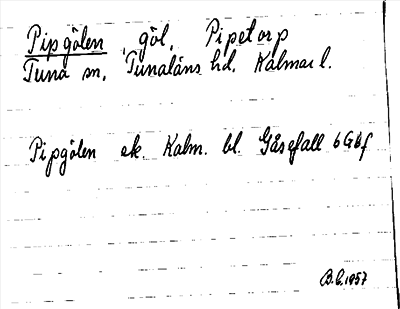 Pipgölen, göl, Pipetorp
Tuna sn, Tunaläns hd, Kalmar l.
Pipgölen ek. Kalm. bl. Gåsefall 6G6f
B.L. 1957